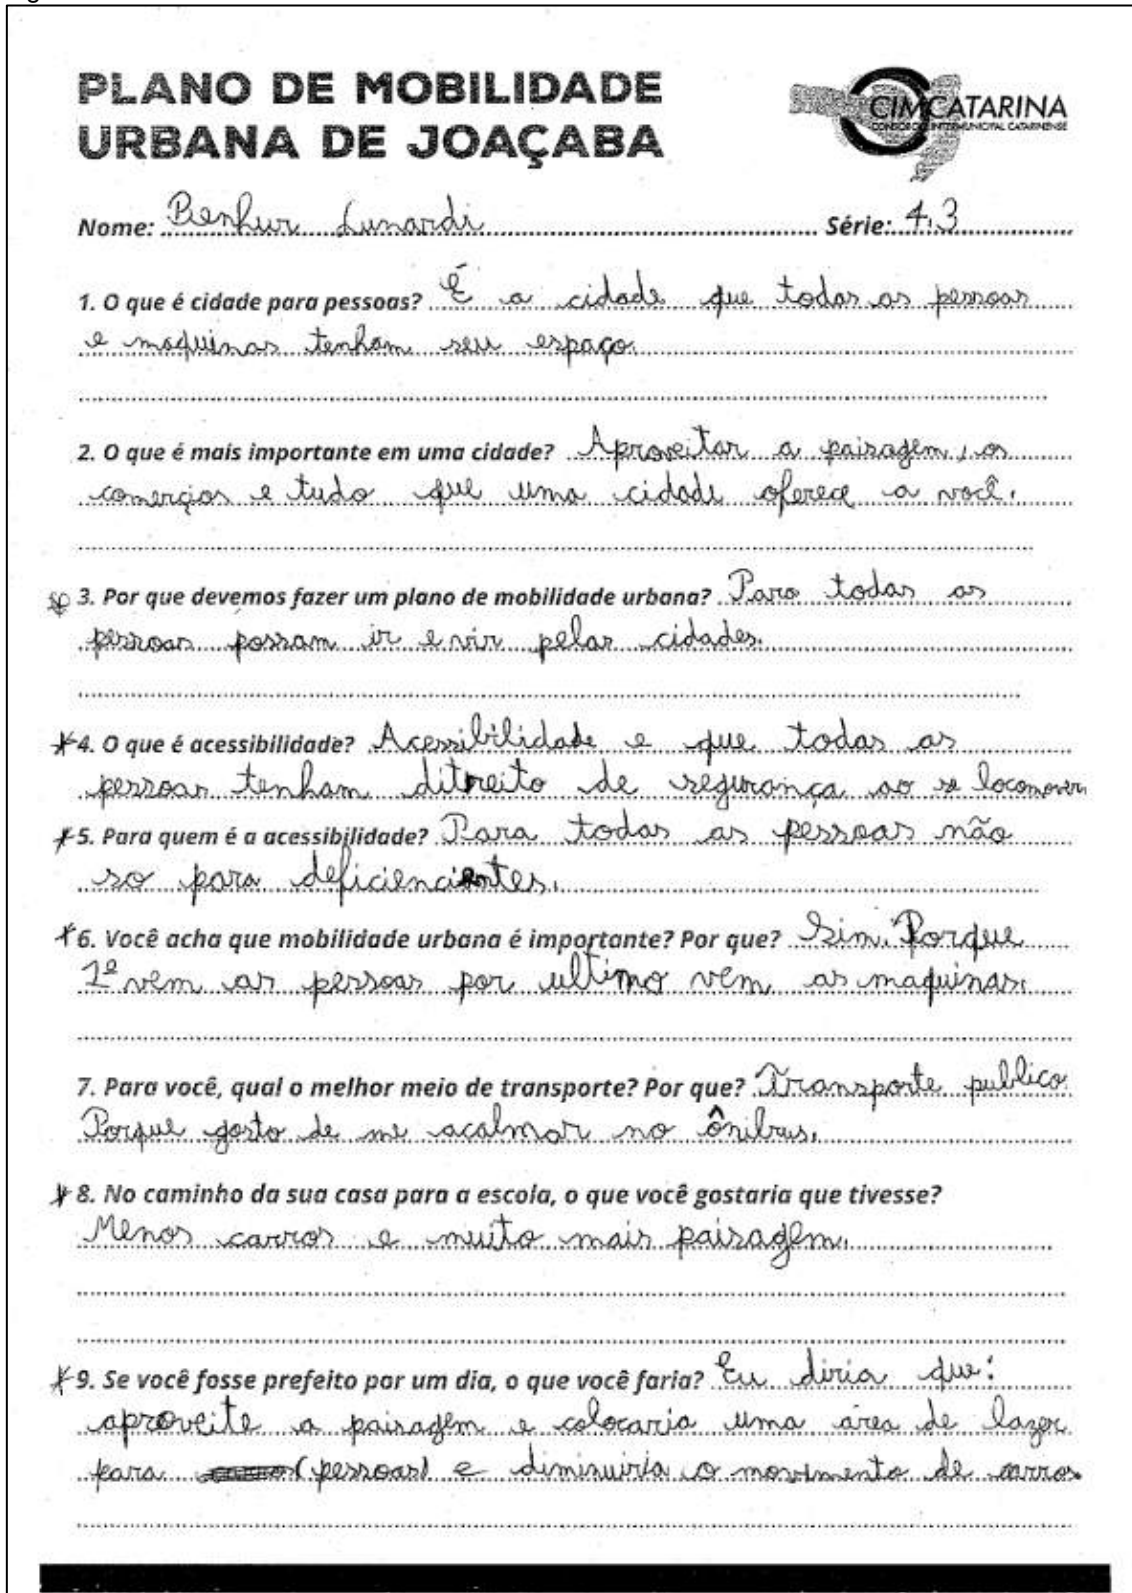 PLANO DE MOBILIDADE
URBANA DE JOAÇABA
CIMCATARINA
CONSÓRCIO INTERMUNICIPAL CATARINENSE
Nome: Benhur Lunardi Série: 4.3
1. O que é cidade para pessoas? É a cidade que todas as pessoas
e maquinas tenham seu espaço.
2. O que é mais importante em uma cidade? Aproveitar a paisagem, os
comerçios e tudo que uma cidade oferece a você.
3. Por que devemos fazer um plano de mobilidade urbana? Para todas as
pessoas possam ir e vir pelas cidades.
4. O que é acessibilidade? Acessibilidade e que todas as
pessoas tenham ditreito de segurança ao se locomover.
5. Para quem é a acessibilidade? Para todas as pessoas não
so para deficiencientes.
6. Você acha que mobilidade urbana é importante? Por que? Sim. Porque
1º vem as pessoas por ultimo vem as maquinas.
7. Para você, qual o melhor meio de transporte? Por que? Transporte publico.
Porque gosto de me acalmar no ônibus.
8. No caminho da sua casa para a escola, o que você gostaria que tivesse?
Menos carros e muito mais paisagem.
9. Se você fosse prefeito por um dia, o que você faria? Eu diria que:
aproveite a paisagem e colocaria uma área de lazer
para (pessoas) e diminuiria o movimento de carros